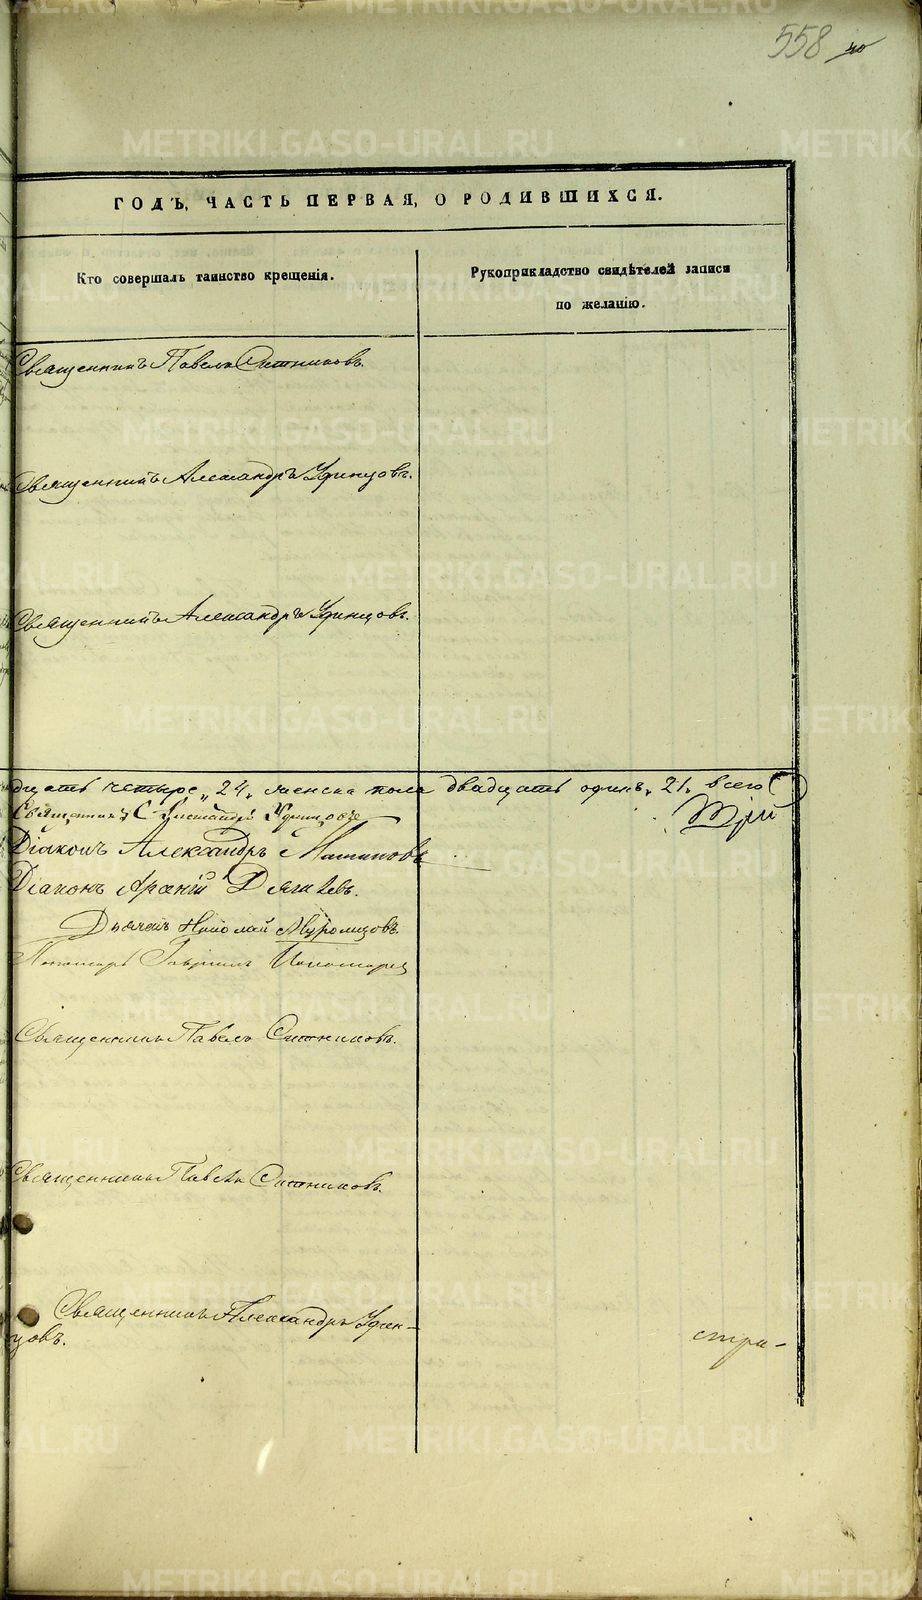 558 40
ГОДЪ, ЧАСТЬ ПЕРВАЯ, О РОДИВШИХСЯ.
Кто совершалъ таинство крещенія.
Рукоприкладство свидѣтелей записи
по желанію.
Священникъ Павелъ Ситниковъ.
Священникъ Александръ Удинцовъ.
Священникъ Александръ Удинцовъ.
дцать четыре „24„ женска пола двадцать одинъ „21„ всего
Священникъ Александръ Удинцовъ
Діаконъ Александръ
Діаконъ
Дьячекъ Николай Муромцовъ.
Пономарь Гавріилъ Пономарев
Священникъ Павелъ Ситниковъ.
Священникъ Павелъ Ситниковъ.
Священникъ Александръ Удин-
цовъ.
METRIKI.GASO-URAL.RU